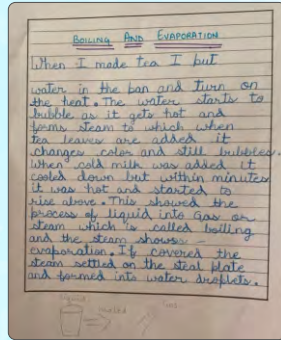 BOILING AND EVAPORATION
When I made tea I put
water in the pan and turn on
the heat. The water starts to
bubble as it gets hot and
forms steam to which when
tea leaves are added it
changes color and still bubbles.
When cold milk was added it
cooled down but within minutes
it was hot and started to
rise above. This showed the
process of liquid into Gas or
steam which is called boiling
and the steam shows -
evaporation. If covered the
steam settled on the steal plate
and formed into water droplets.